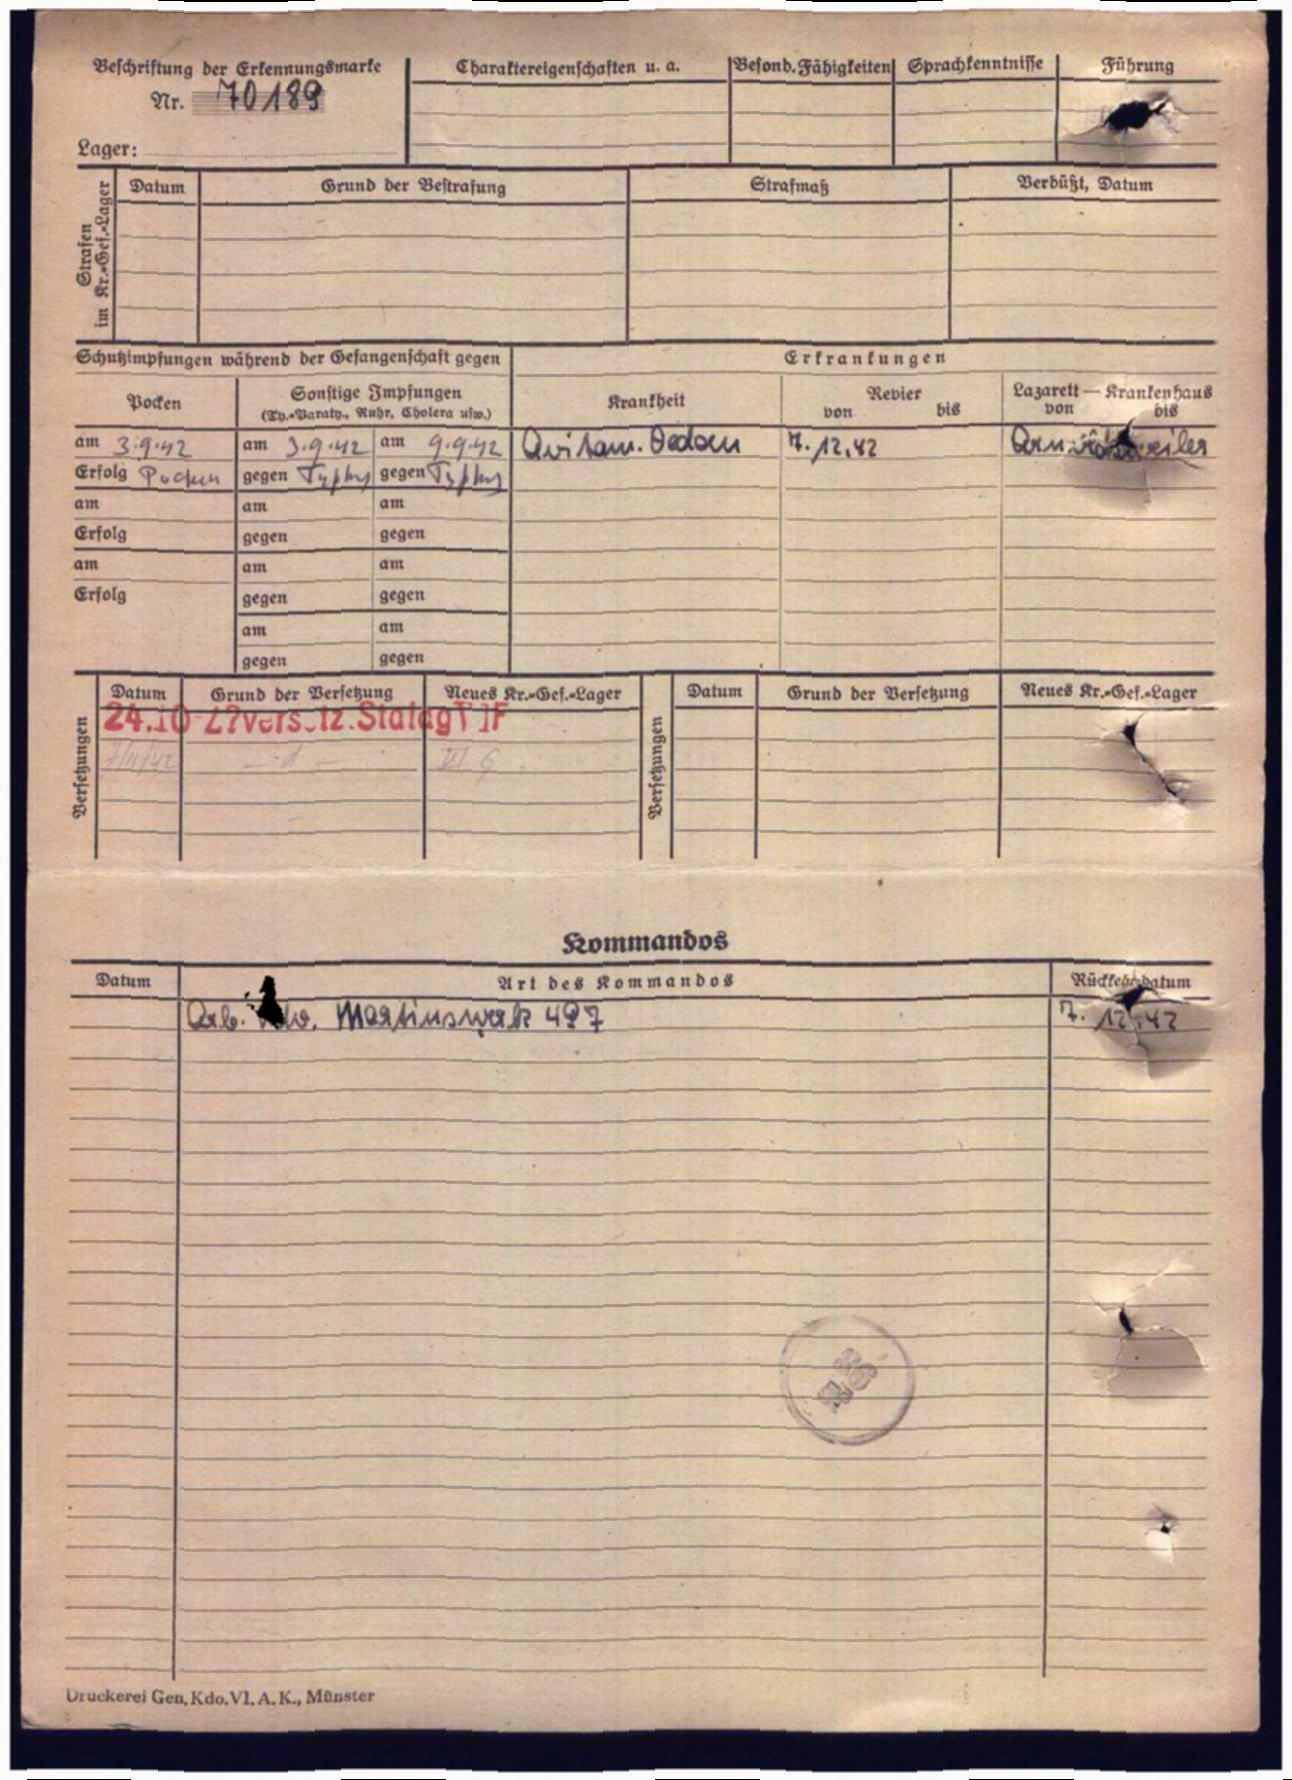 Beschriftung der Erkennungsmarke
Nr. 70189
Lager:
Charaktereigenschaften u. a.
Besond. Fähigkeiten
Sprachkenntnisse
Führung
Strafen im Kr.-Gef.-Lager
Datum
Grund der Bestrafung
Strafmaß
Verbüßt, Datum
Schutzimpfungen während der Gefangenschaft gegen
Erkrankungen
Pocken
Sonstige Impfungen
(Ty.-Paraty., Ruhr, Cholera usw.)
Krankheit
Revier
von bis
Lazarett — Krankenhaus
von bis
am 3.9.42 am 3.9.42 am 9.9.42 Avitam. Oedom 7.12.42
Erfolg Pocken gegen Typhus gegen Typhus
am am am
Erfolg gegen gegen
am am am
Erfolg gegen gegen
am am
gegen gegen
Versetzungen
Datum Grund der Versetzung Neues Kr.-Gef.-Lager
Versetzungen
Datum Grund der Versetzung Neues Kr.-Gef.-Lager
24.10. Stalag
7/11/42 VI G
Kommandos
Datum Art des Kommandos Rückkehrdatum
Arb. Martinswerk 497 7.12.42
Druckerei Gen. Kdo. VI. A. K., Münster